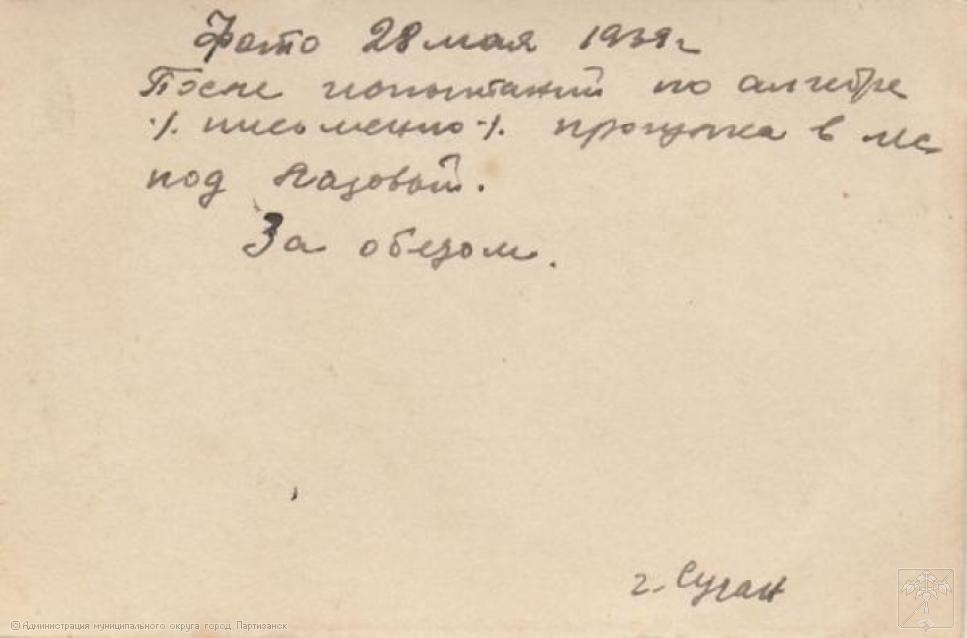 Фото 28 мая 1939 г
После испытаний по алгебре
·/. письменно ·/. прогулка в лес
под Лазовой.
За обедом.
г. Сучан
© Администрация муниципального округа город Партизанск